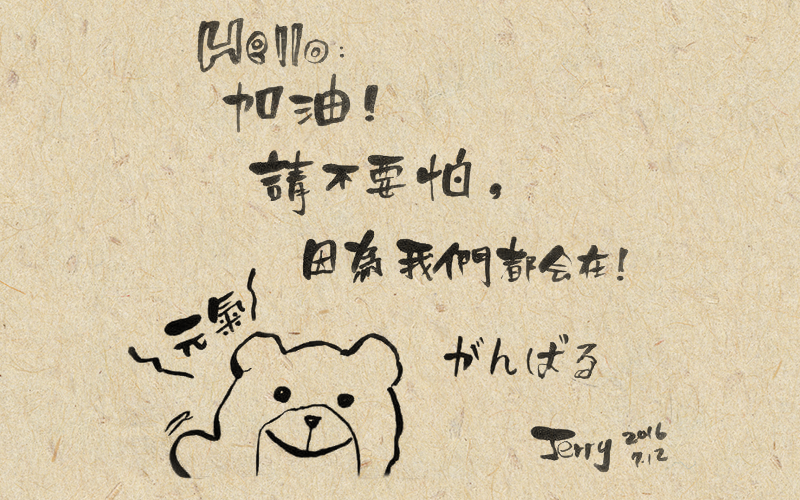 Hello:
加油!
請不要怕,
因為我們都会在!
元氣
がんばる
Jerry 2016
7.12